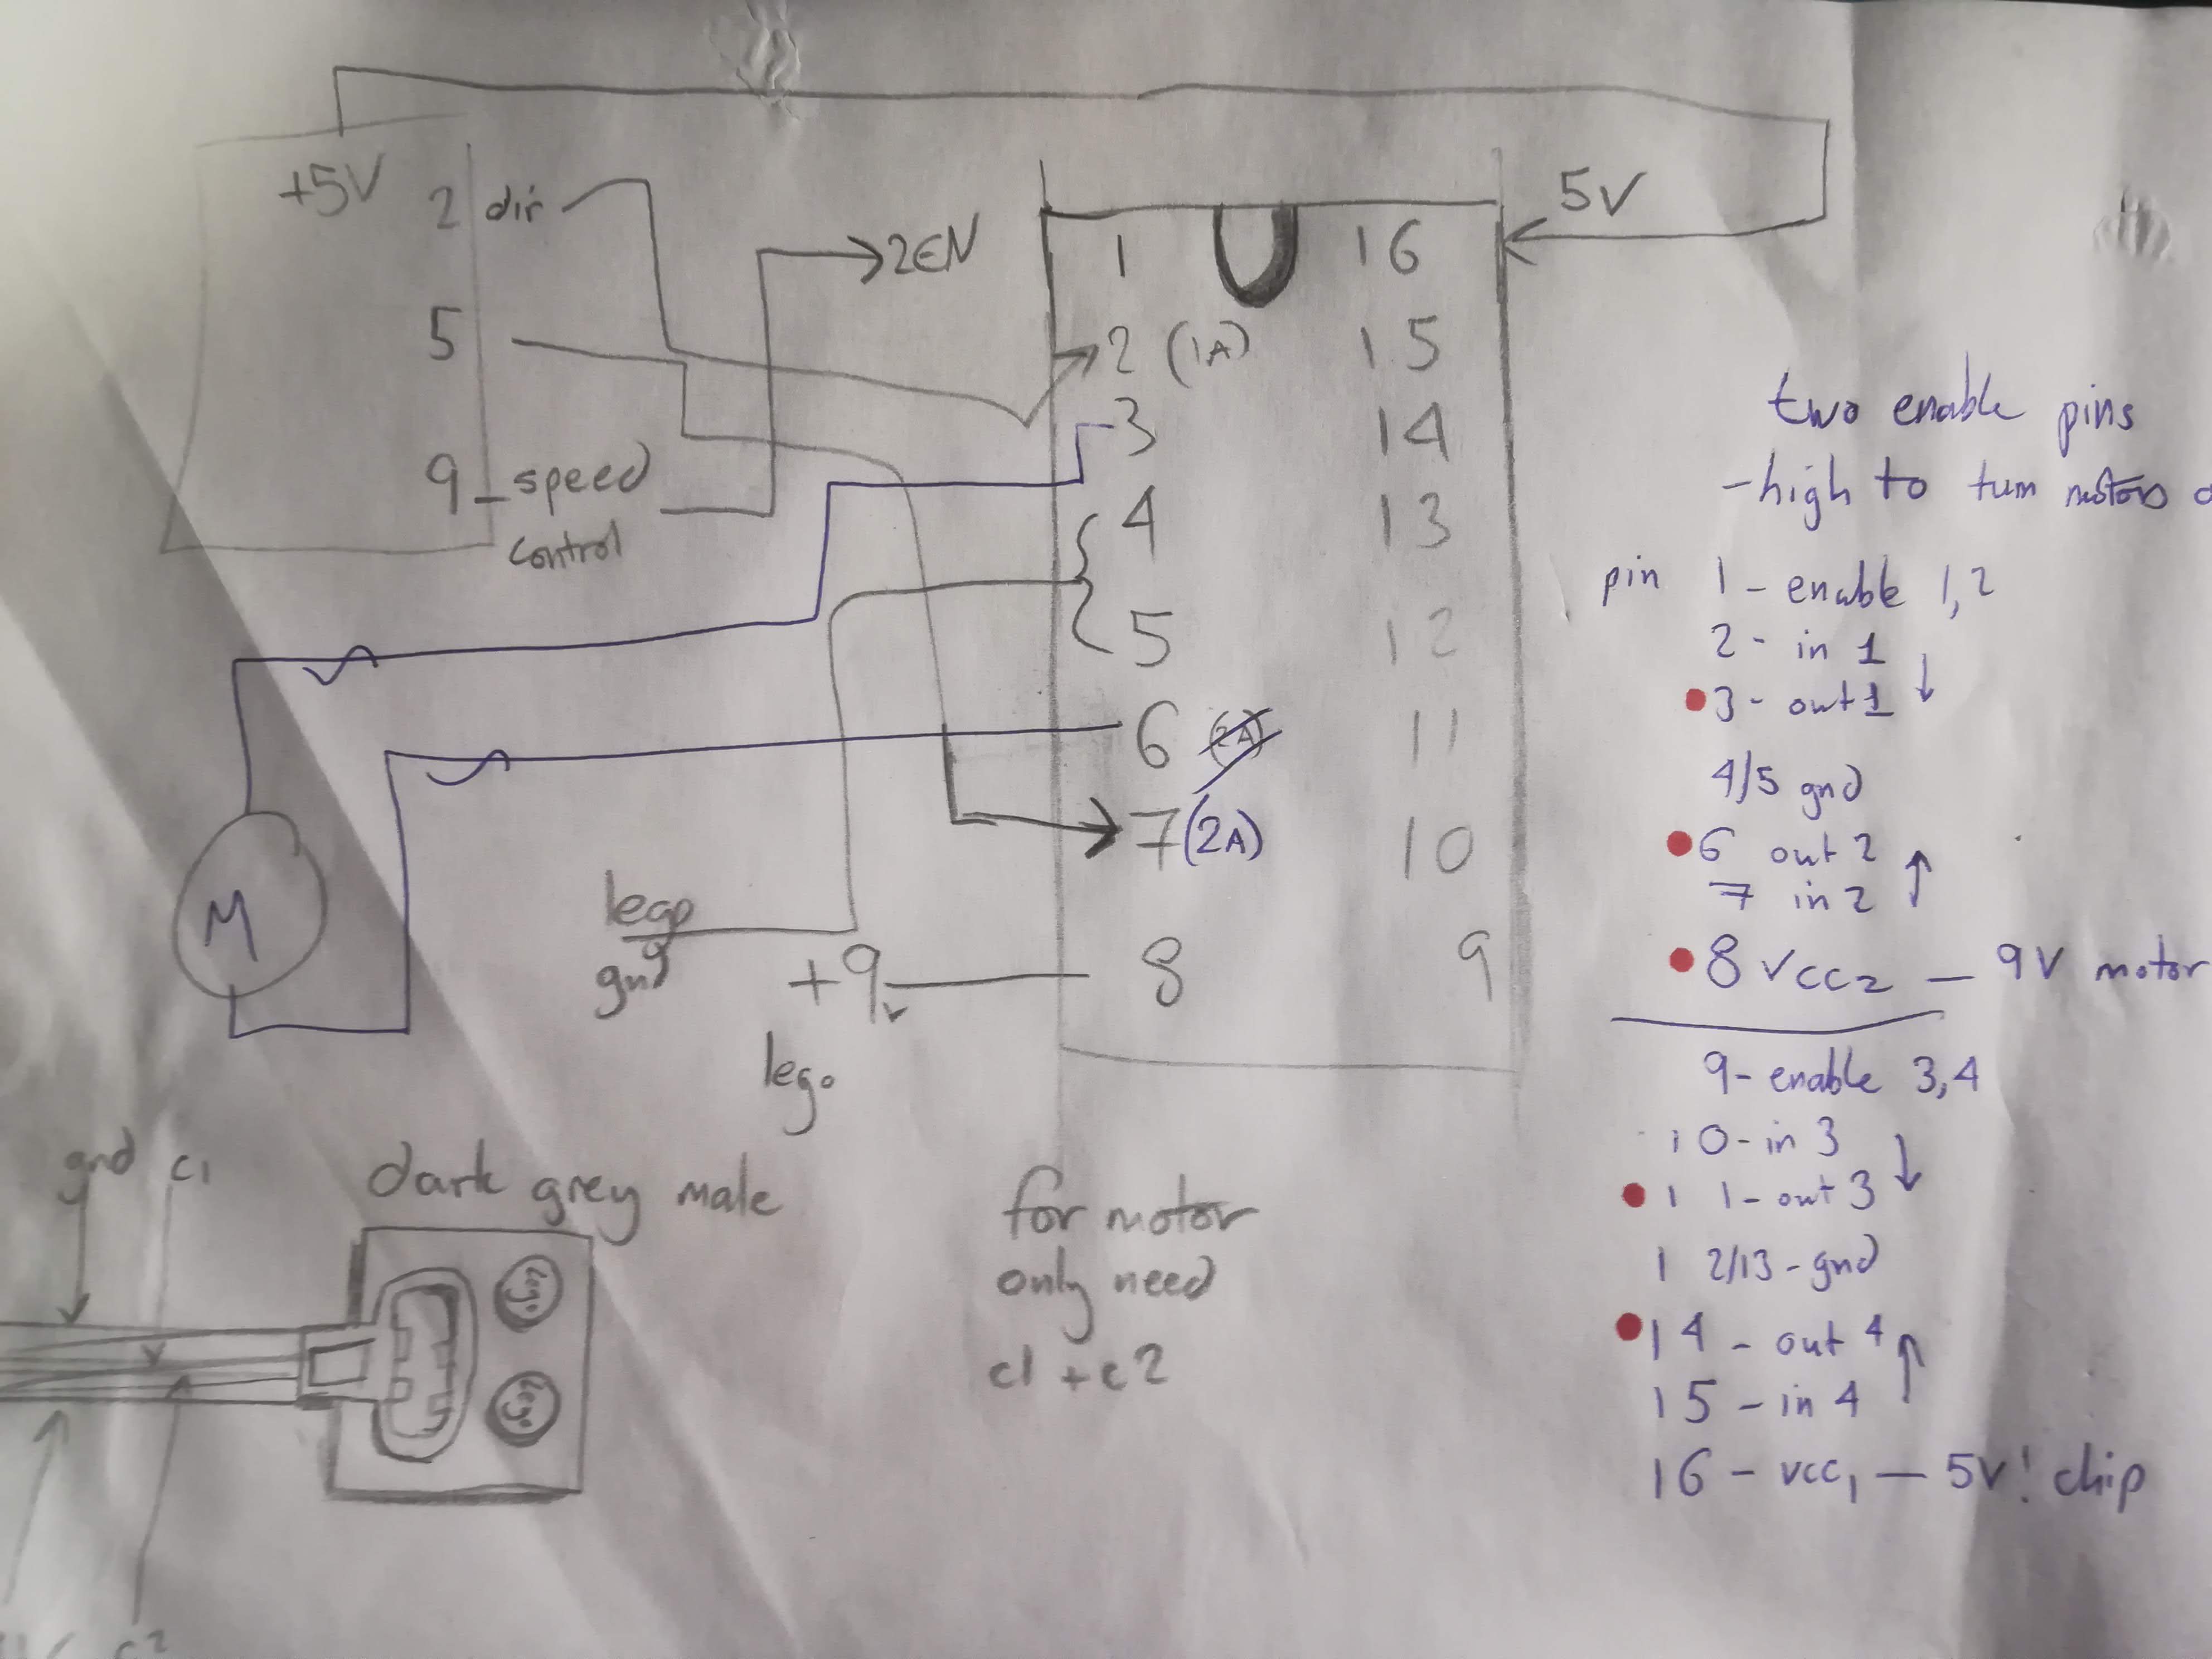 +5V
2 dir
5
9 - speed
control
2EN
5V
1 16
2 (1A) 15
3 14
4 13
5 12
6 (2A) 11
7 (2A) 10
8 9
M
lego
gnd
+9v
lego
two enable pins
- high to turn motors
pin 1 - enable 1,2
2 - in 1 ↓
3 - out 1
4/5 gnd
6 out 2 ↑
7 in 2
8 vcc2 — 9V motor
9 - enable 3,4
10 - in 3 ↓
11 - out 3
12/13 - gnd
14 - out 4 ↑
15 - in 4
16 - vcc1 — 5V! chip
gnd c1
dark grey male
lego
lego
c2
for motor
only need
c1 + c2